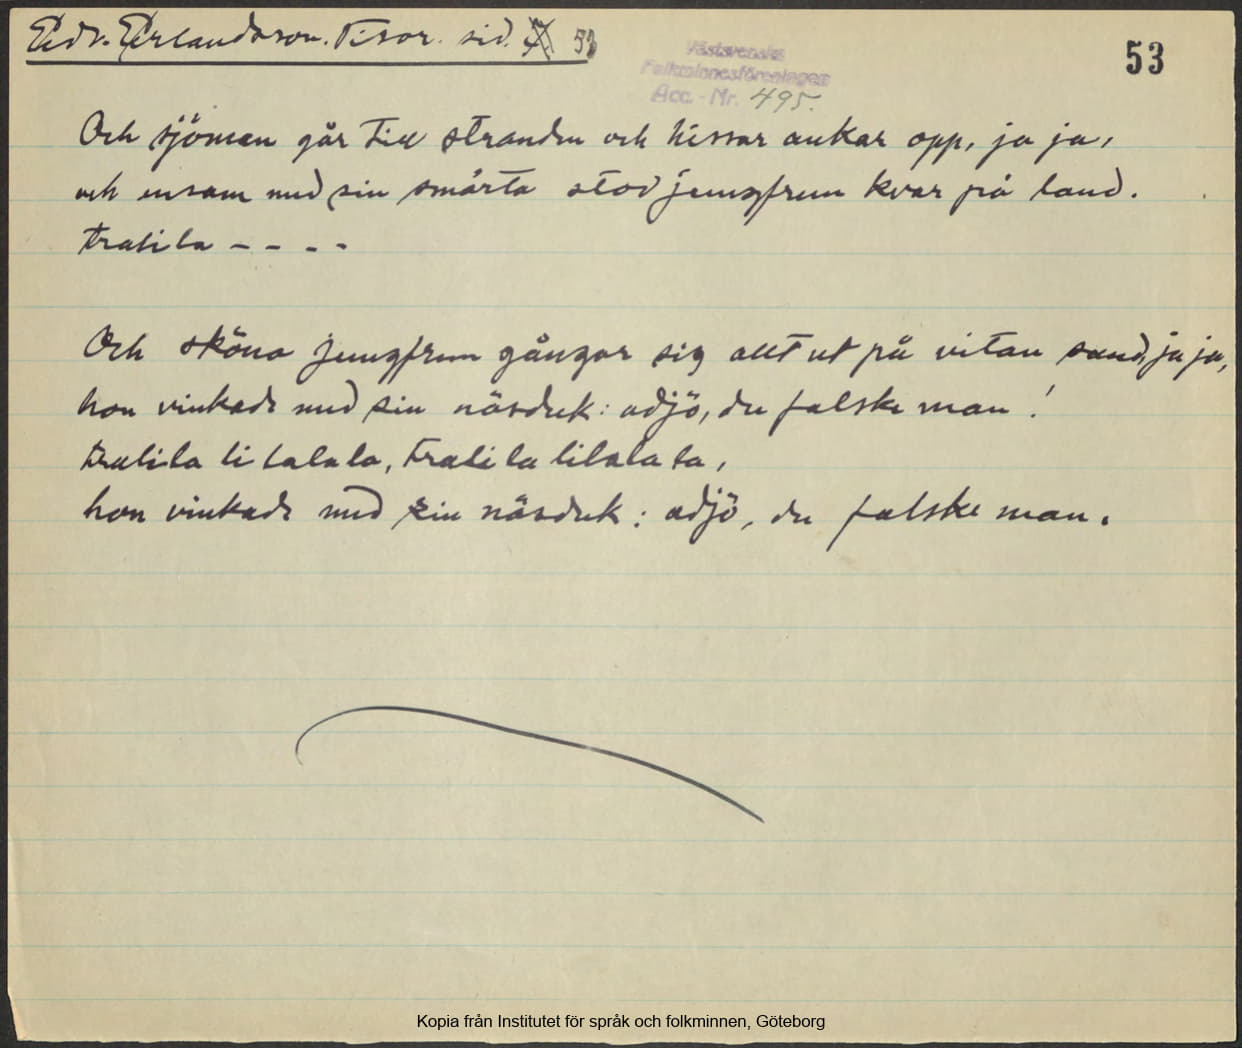 Edv. Erlandsson. Visor. sid. 53
Västsvenska
Folkminnesföreningen
Acc. - Nr. 495.
53
Och sjöman går till stranden och hissar ankar opp, ja ja,
och ensam med sin smärta stod jungfrun kvar på land.
tralila - - - -
Och sköna jungfrun gångar sig allt ut på vitan sand, ja ja,
hon vinkade med sin näsduk: adjö, du falske man!
tralila li lalala, tralila lilalala,
hon vinkade med sin näsduk: adjö, du falske man.
Kopia från Institutet för språk och folkminnen, Göteborg